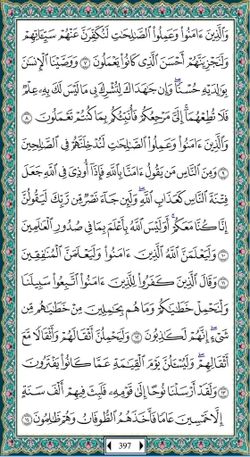 وَالَّذِينَ ءَامَنُوا وَعَمِلُوا الصَّٰلِحَٰتِ لَنُكَفِّرَنَّ عَنْهُمْ سَيِّـَٔاتِهِمْ
وَلَنَجْزِيَنَّهُمْ أَحْسَنَ الَّذِى كَانُوا يَعْمَلُونَ ٧ وَوَصَّيْنَا الْإِنسَٰنَ
بِوَٰلِدَيْهِ حُسْنًا وَإِن جَٰهَدَاكَ لِتُشْرِكَ بِى مَا لَيْسَ لَكَ بِهِۦ عِلْمٌ
فَلَا تُطِعْهُمَا إِلَىَّ مَرْجِعُكُمْ فَأُنَبِّئُكُم بِمَا كُنتُمْ تَعْمَلُونَ ٨
وَالَّذِينَ ءَامَنُوا وَعَمِلُوا الصَّٰلِحَٰتِ لَنُدْخِلَنَّهُمْ فِى الصَّٰلِحِينَ
٩ وَمِنَ النَّاسِ مَن يَقُولُ ءَامَنَّا بِاللَّهِ فَإِذَا أُوذِىَ فِى اللَّهِ جَعَلَ
فِتْنَةَ النَّاسِ كَعَذَابِ اللَّهِ وَلَئِن جَاءَ نَصْرٌ مِّن رَّبِّكَ لَيَقُولُنَّ
إِنَّا كُنَّا مَعَكُمْ أَوَلَيْسَ اللَّهُ بِأَعْلَمَ بِمَا فِى صُدُورِ الْعَٰلَمِينَ
١٠ وَلَيَعْلَمَنَّ اللَّهُ الَّذِينَ ءَامَنُوا وَلَيَعْلَمَنَّ الْمُنَٰفِقِينَ
١١ وَقَالَ الَّذِينَ كَفَرُوا لِلَّذِينَ ءَامَنُوا اتَّبِعُوا سَبِيلَنَا
وَلْنَحْمِلْ خَطَٰيَٰكُمْ وَمَا هُم بِحَٰمِلِينَ مِنْ خَطَٰيَٰهُم مِّن
شَىْءٍ إِنَّهُمْ لَكَٰذِبُونَ ١٢ وَلَيَحْمِلُنَّ أَثْقَالَهُمْ وَأَثْقَالًا مَّعَ
أَثْقَالِهِمْ وَلَيُسْـَٔلُنَّ يَوْمَ الْقِيَٰمَةِ عَمَّا كَانُوا يَفْتَرُونَ
١٣ وَلَقَدْ أَرْسَلْنَا نُوحًا إِلَىٰ قَوْمِهِۦ فَلَبِثَ فِيهِمْ أَلْفَ سَنَةٍ
إِلَّا خَمْسِينَ عَامًا فَأَخَذَهُمُ الطُّوفَانُ وَهُمْ ظَٰلِمُونَ ١٤
397